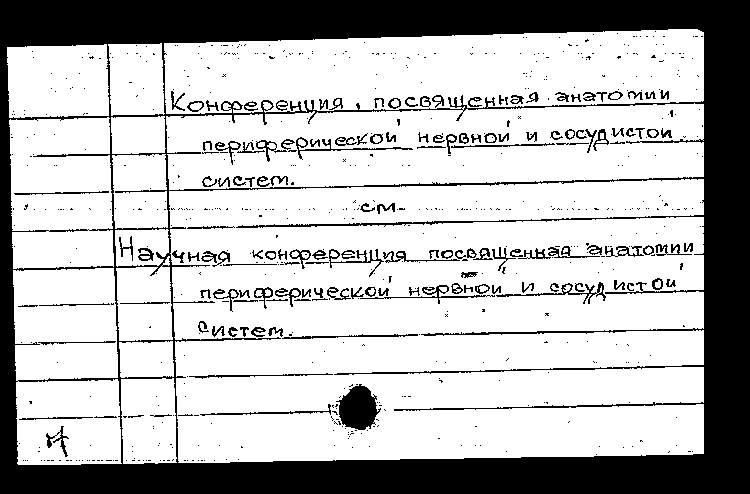 Конференция, посвященная анатомии
периферической нервной и сосудистой
систем.
см.
Научная конференция посвященная анатомии
периферической нервной и сосудистой
систем.